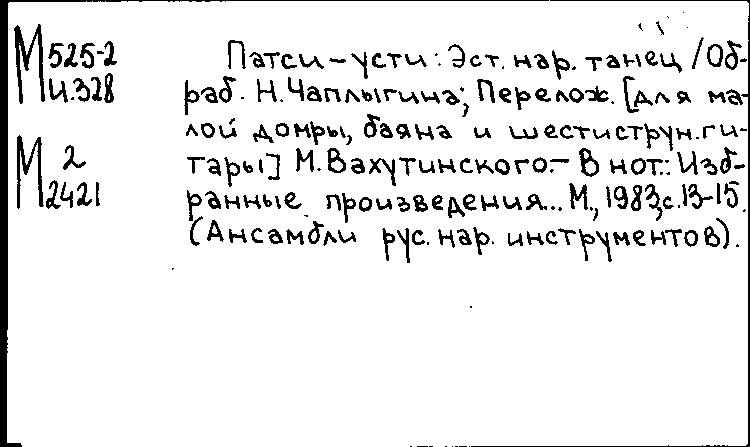 М 525-2
И.328
М 2
2421
Патси-усти: Эст. нар. танец / Об-
раб. Н. Чаплыгина; Перелож. [для ма-
лой домры, баяна и шестиструн. ги-
тары] М. Вахутинского.- В нот.: Изб-
ранные произведения... М., 1983, с. 13-15.
(Ансамбли рус. нар. инструментов).